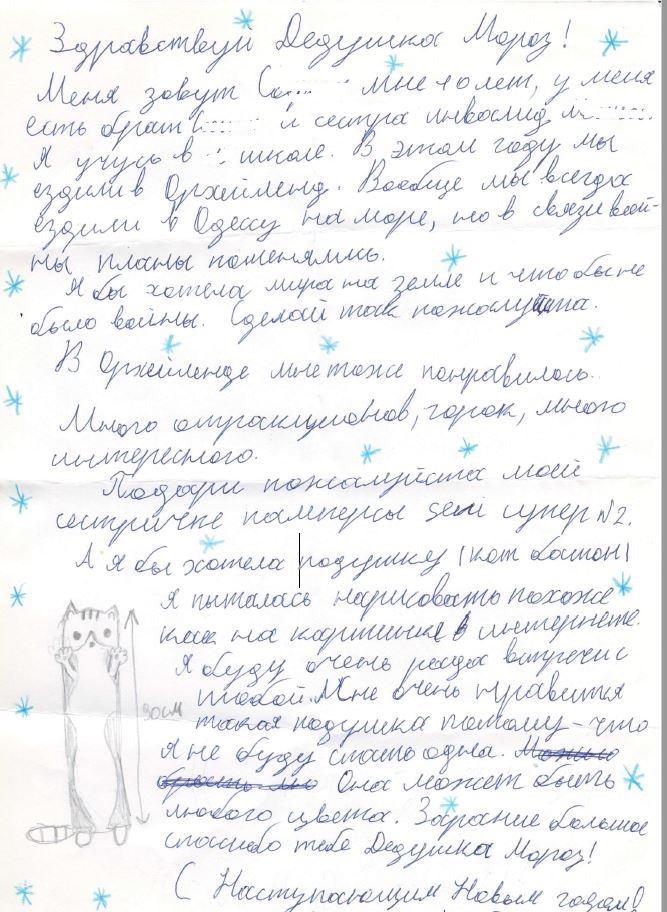 Здравствуй Дедушка Мороз!
Меня зовут С мне 10 лет, у меня
есть брат и сестра инвалид
Я учусь в школе. В этом году мы
ездили в Орхейленд. Вообще мы всегда
ездили в Одессу на море, но в связи вой-
ны планы поменялись.
Я бы хотела мира на земле и что бы не
было войны. Сделай так пожалуйшта.
В Орхейленде мне тоже понравилось.
Много отракционов, горок, много
интересного.
Подари пожалуйста моей
сестричке памперсы seni супер N2.
А я бы хотела подушку (кот батон)
я пыталась нарисовать похоже
как на картинке в интернете.
Я буду очень рада встречи с
тобой. Мне очень нравится
90см
такая подушка потому-что
я не буду спать одна.
Она может быть
любого цвета. Зарание большое
спасибо тебе Дедушка Мороз!
С Наступающим Новым годом!